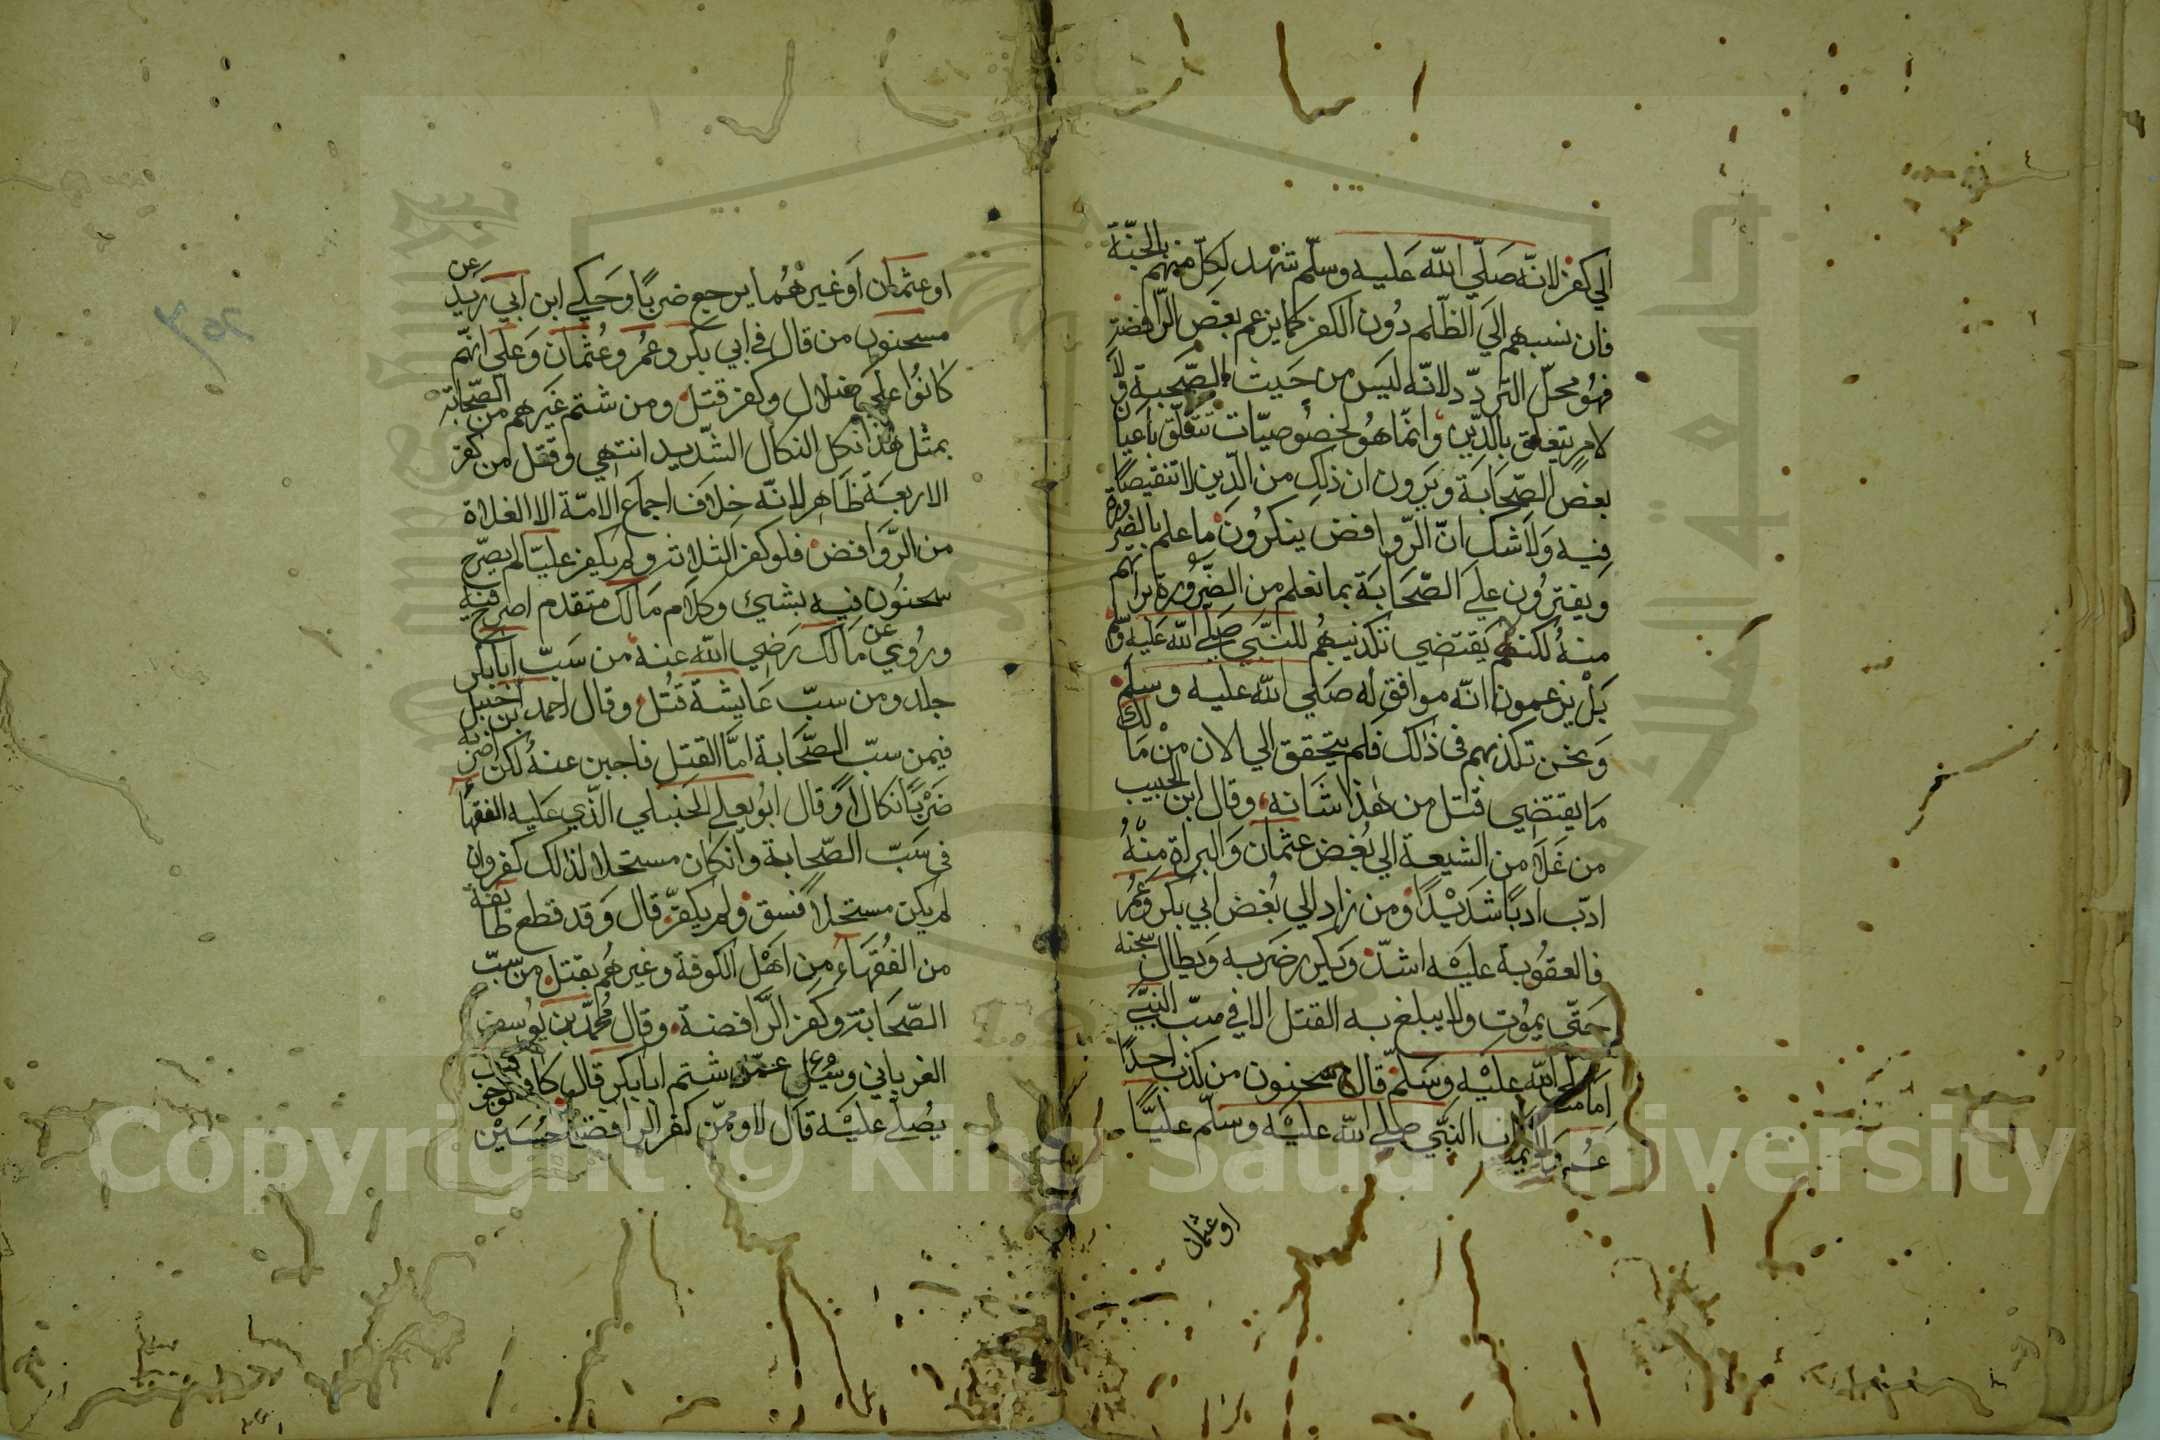 الي كفر لانّه صَلّي الله عَليه وسلّم شهد لكلّ منهم بالجنّة
فان نسبهم الَي الظّلم دُون الكفر كما يزعم بعض الرّافضة
فهُو محلّ التردّد لانّه ليَس من حَيث الصّحبة وَلا
لامرٍ يتعلق بالدّين وانّما هُو لخصُوصيّات تتعَلّق باعيان
بعض الصّحَابَة ويَرون ان ذلك من الدّين لا تنقيصًا
فيه وَلا شك انّ الرّوافض ينكرُونَ ما علم بالضرورة
وَيفترُون علي الصّحَابَة بما نعلم من الضَّرُورة براتهم
منهُ لكنهم يَقتضي تكذيبهُم للنّبي صَلّي الله عَليه وسّلم
بَلْ يزعمون انّه موافق له صَلّي الله عليه وسلّم
وَنحن نكذبهم في ذلك فلم يتحقق الي الان منْ مَالك
مَا يقتضي قتل من هذا شَانه وقال ابن الحبيب
من غَلا من الشيعة الي بُغض عثمان وَالبراة منْهُ
ادّب ادبًا شَديْدًا ومن زاد الي بُغض ابي بكر وعُمرُ
فالعقوُبة عليْه اشدّ وَيكرر ضَربه وَيطال سجنه
حَتّي يموُت ولا يبلغ به القتل الا في سبّ النبيّ
صلّي الله عليْه وسَلّم قال سحنون من كذب احدًا
من اصحَاب النبّي صلي الله عليْه وسلّم عليّا
او عثمان
او عثمان اَو غيرهُما يرجع ضربًا وَحَكي ابن ابي زيد عن
سحنون من قال في ابي بكر وعُمر وعُثمان وَعلي انّهم
كانوُا علي ضلال وكفر قتل ومن شتم غَيرهم من الصّحَابة
بمثل هذا نكل النكال الشّديد انتهي وقتل من كفر
الاربعَة ظَاهر لانّه خلاف اجماع الامّة الا الغلاة
من الرّوَافض فلو كفر الثلاثة ولم يكفر عليّا لم يصّرح
سحنوُن فيه بشئ وكلام مَالك متقدم اصرح فيه
ورُوي عن مَالك رَضي الله عنه من سَبّ ابا بكر
جلد ومن سبّ عَايشة قُتل وقال احمد بن حنبل
فيمن سبّ الصّحَابة امَّا القتل فاجبن عنهُ لكن اضربه
ضَرْبًا نكالاً وقال ابوُ يعلي الحنبلي الّذي عَليه الفقهَا
في سَبّ الصّحابة وان كان مستحلا لذلك كفر وان
لم يكن مستحلاً فسق ولم يكفّر قال وَقد قطع طايفة
من الفُقهَاء من اَهْل الكوفة وغيرهُم بقتل من سَبّ
الصّحَابة وكفر الرّافضة وقال مُحمّد بن يوُسف
الفريابي وسُئل عمّن شتم ابا بكر قال كافر
يُصلّي عليْه قال لا وممّن كفر الرافضة